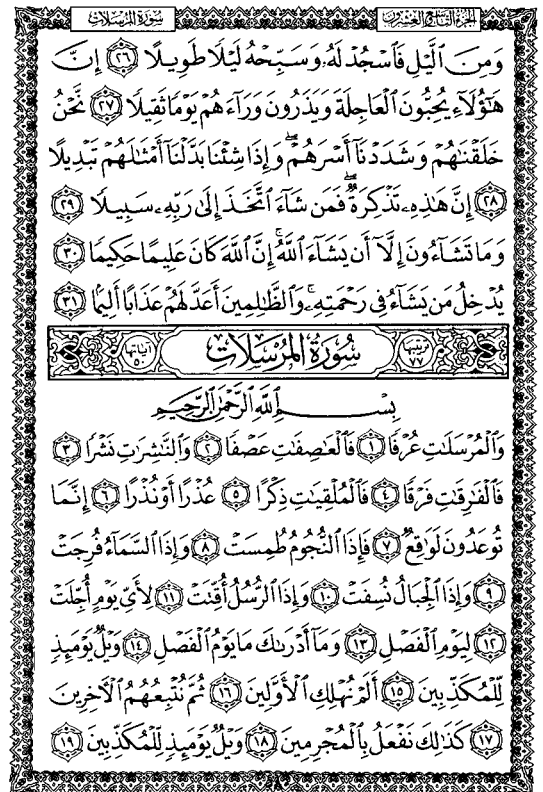 سورة المرسلات الجزء التاسع والعشرون
وَمِنَ ٱلَّيْلِ فَٱسْجُدْ لَهُۥ وَسَبِّحْهُ لَيْلًا طَوِيلًا ﴿٢٦﴾ إِنَّ
هَٰٓؤُلَآءِ يُحِبُّونَ ٱلْعَاجِلَةَ وَيَذَرُونَ وَرَآءَهُمْ يَوْمًا ثَقِيلًا ﴿٢٧﴾ نَّحْنُ
خَلَقْنَٰهُمْ وَشَدَدْنَآ أَسْرَهُمْ ۖ وَإِذَا شِئْنَا بَدَّلْنَآ أَمْثَٰلَهُمْ تَبْدِيلًا
﴿٢٨﴾ إِنَّ هَٰذِهِۦ تَذْكِرَةٌ ۖ فَمَن شَآءَ ٱتَّخَذَ إِلَىٰ رَبِّهِۦ سَبِيلًا ﴿٢٩﴾
وَمَا تَشَآءُونَ إِلَّآ أَن يَشَآءَ ٱللَّهُ ۚ إِنَّ ٱللَّهَ كَانَ عَلِيمًا حَكِيمًا ﴿٣٠﴾
يُدْخِلُ مَن يَشَآءُ فِى رَحْمَتِهِۦ ۚ وَٱلظَّٰلِمِينَ أَعَدَّ لَهُمْ عَذَابًا أَلِيمًۢا ﴿٣١﴾
ترتيبها ٧٧ سُورَةُ المُرْسَلَاتِ آياتها ٥٠
بِسْمِ ٱللَّهِ ٱلرَّحْمَٰنِ ٱلرَّحِيمِ
وَٱلْمُرْسَلَٰتِ عُرْفًا ﴿١﴾ فَٱلْعَٰصِفَٰتِ عَصْفًا ﴿٢﴾ وَٱلنَّٰشِرَٰتِ نَشْرًا ﴿٣﴾
فَٱلْفَٰرِقَٰتِ فَرْقًا ﴿٤﴾ فَٱلْمُلْقِيَٰتِ ذِكْرًا ﴿٥﴾ عُذْرًا أَوْ نُذْرًا ﴿٦﴾ إِنَّمَا
تُوعَدُونَ لَوَٰقِعٌ ﴿٧﴾ فَإِذَا ٱلنُّجُومُ طُمِسَتْ ﴿٨﴾ وَإِذَا ٱلسَّمَآءُ فُرِجَتْ
﴿٩﴾ وَإِذَا ٱلْجِبَالُ نُسِفَتْ ﴿١٠﴾ وَإِذَا ٱلرُّسُلُ أُقِّتَتْ ﴿١١﴾ لِأَىِّ يَوْمٍ أُجِّلَتْ
﴿١٢﴾ لِيَوْمِ ٱلْفَصْلِ ﴿١٣﴾ وَمَآ أَدْرَىٰكَ مَا يَوْمُ ٱلْفَصْلِ ﴿١٤﴾ وَيْلٌ يَوْمَئِذٍ
لِّلْمُكَذِّبِينَ ﴿١٥﴾ أَلَمْ نُهْلِكِ ٱلْأَوَّلِينَ ﴿١٦﴾ ثُمَّ نُتْبِعُهُمُ ٱلْءَاخِرِينَ
﴿١٧﴾ كَذَٰلِكَ نَفْعَلُ بِٱلْمُجْرِمِينَ ﴿١٨﴾ وَيْلٌ يَوْمَئِذٍ لِّلْمُكَذِّبِينَ ﴿١٩﴾